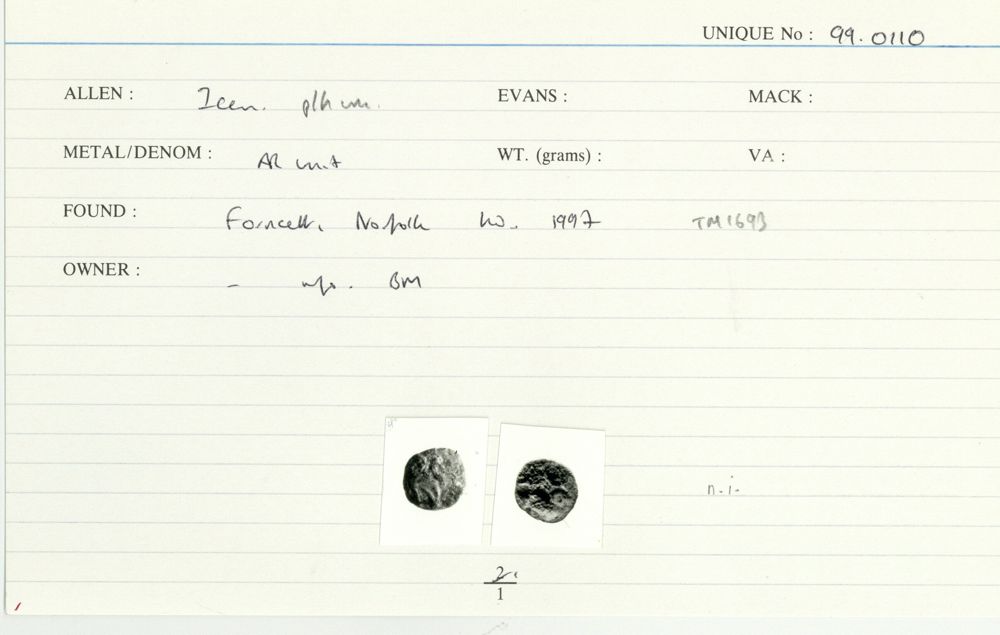 UNIQUE No : 99.0110
ALLEN : Icen. EVANS : MACK :
METAL/DENOM : AR unit WT. (grams) : VA :
FOUND : Forncett, Norfolk 1997 TM1693
OWNER : - BM
n.i.
2
1